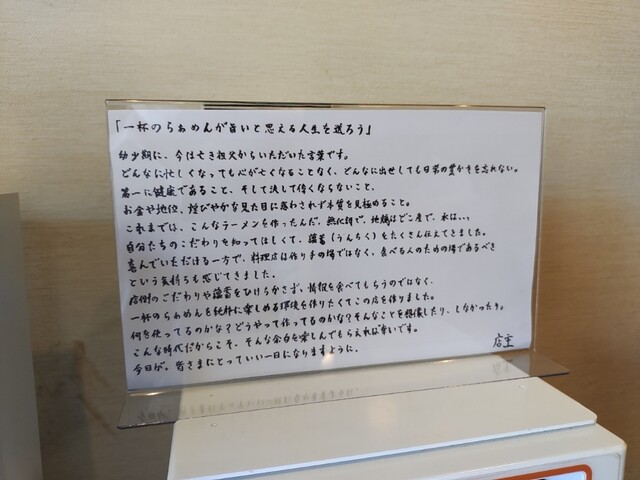 「一杯のらぁめんが旨いと思える人生を送ろう」
幼少期に、今は亡き祖父からいただいた言葉です。
どんなに忙しくなっても心が亡くなることなく、どんなに出世しても日常の豊かさを忘れない。
第一に健康であること、そして決して偉くならないこと、
お金や地位、煌びやかな見た目に惑わされず本質を見極めること。
これまでは、こんなラーメンを作ったんだ、無化調で、地鶏はどこ産で、水は、、
自分たちのこだわりを知ってほしくて、薀蓄(うんちく)をたくさん伝えてきました。
喜んでいただける一方で、料理店は作り手の場ではなく、食べる人のための場であるべき
という気持ちも感じてきました。
店側のこだわりや薀蓄をひけらかさず、情報を食べてもらうのではなく、
一杯のらぁめんを純粋に楽しめる環境を作りたくてこの店を作りました。
何を使ってるのかな?どうやって作ってるのかな?そんなことを想像したり、しなかったり。
こんな時代だからこそ、そんな余白を楽しんでもらえれば幸いです。
今日が、皆さまにとっていい一日になりますように。
店主